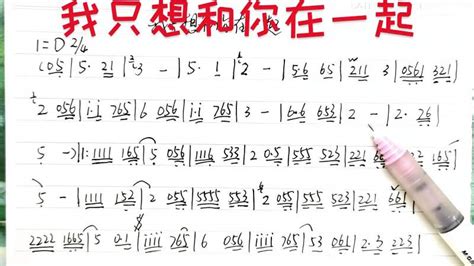 我只想和你在一起
1=D 2/4
605 | 5· 21 | 3 - | 5· 1 | 2 - | 5·6 65 | 211 3 | 0561 321 |
2 056 | i·i 765 | 6 056 | i·i 765 | 3 - | 6·6 653 | 2 - | 2· 26 |
5 - |: 1111 165 | 5 056 | 1116 533 | 2 0·5 | 555 523 | 221 165 |
5 - | 1111 152 | 2 055 | 5555 553 | 2 055 | 555 523 | 221 661 |
2222 1665 | 5 0·1 | iiii 765 | 6 056 | iiii 765 | 53 061 | 2·3 223 |